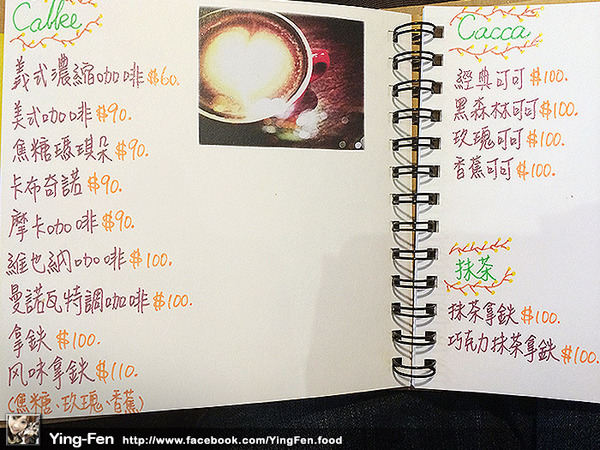 Cabbee
義式濃縮咖啡 $60.
美式咖啡 $90.
焦糖瑪琪朵 $90.
卡布奇諾 $90.
摩卡咖啡 $90.
維也納咖啡 $100.
曼諾瓦特調咖啡 $100.
拿鐵 $100.
风味拿鉄 $110.
(焦糖、玫瑰、香蕉)
Cacca
經典可可 $100.
黑森林可可 $100.
玫瑰可可 $100.
香蕉可可 $100.
抹茶
抹茶拿鉄 $100.
巧克力抹茶拿鉄 $100.
Ying-Fen http://www.facebook.com/YingFen.food